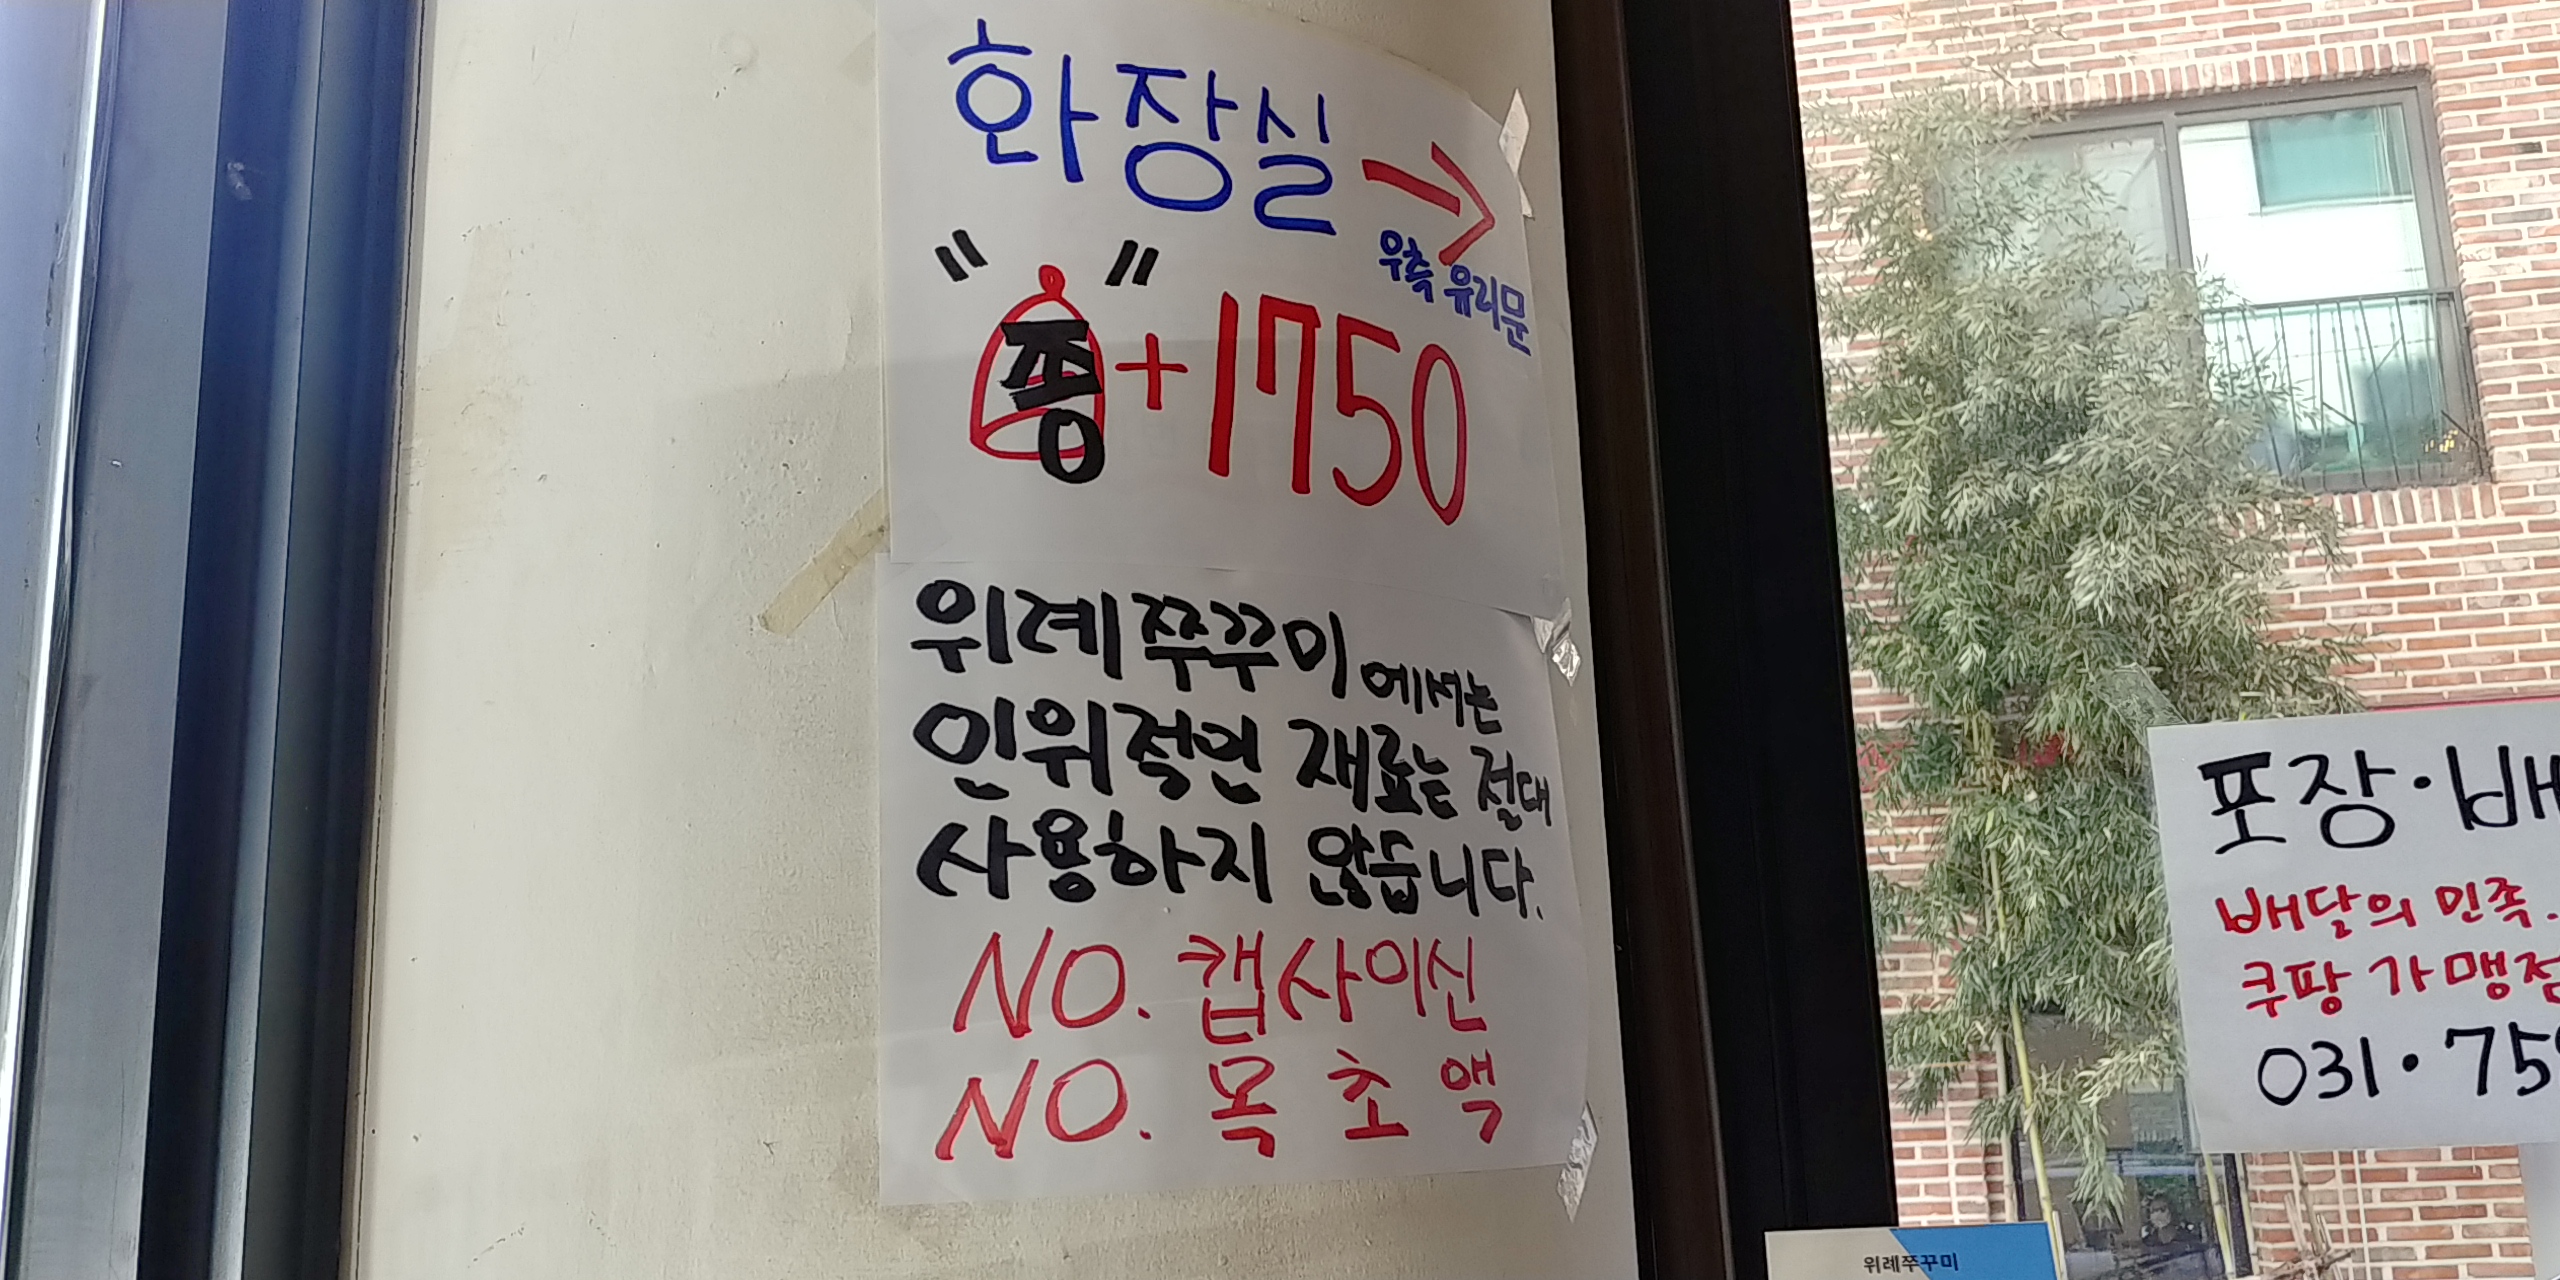 화장실 →
우측 유리문
"종"+1750
위례쭈꾸미에서는
인위적인 재료는 절대
사용하지 않습니다.
NO. 캡사이신
NO. 목초액
포장·배
배달의 민족.
쿠팡 가맹점
031·75
위례쭈꾸미